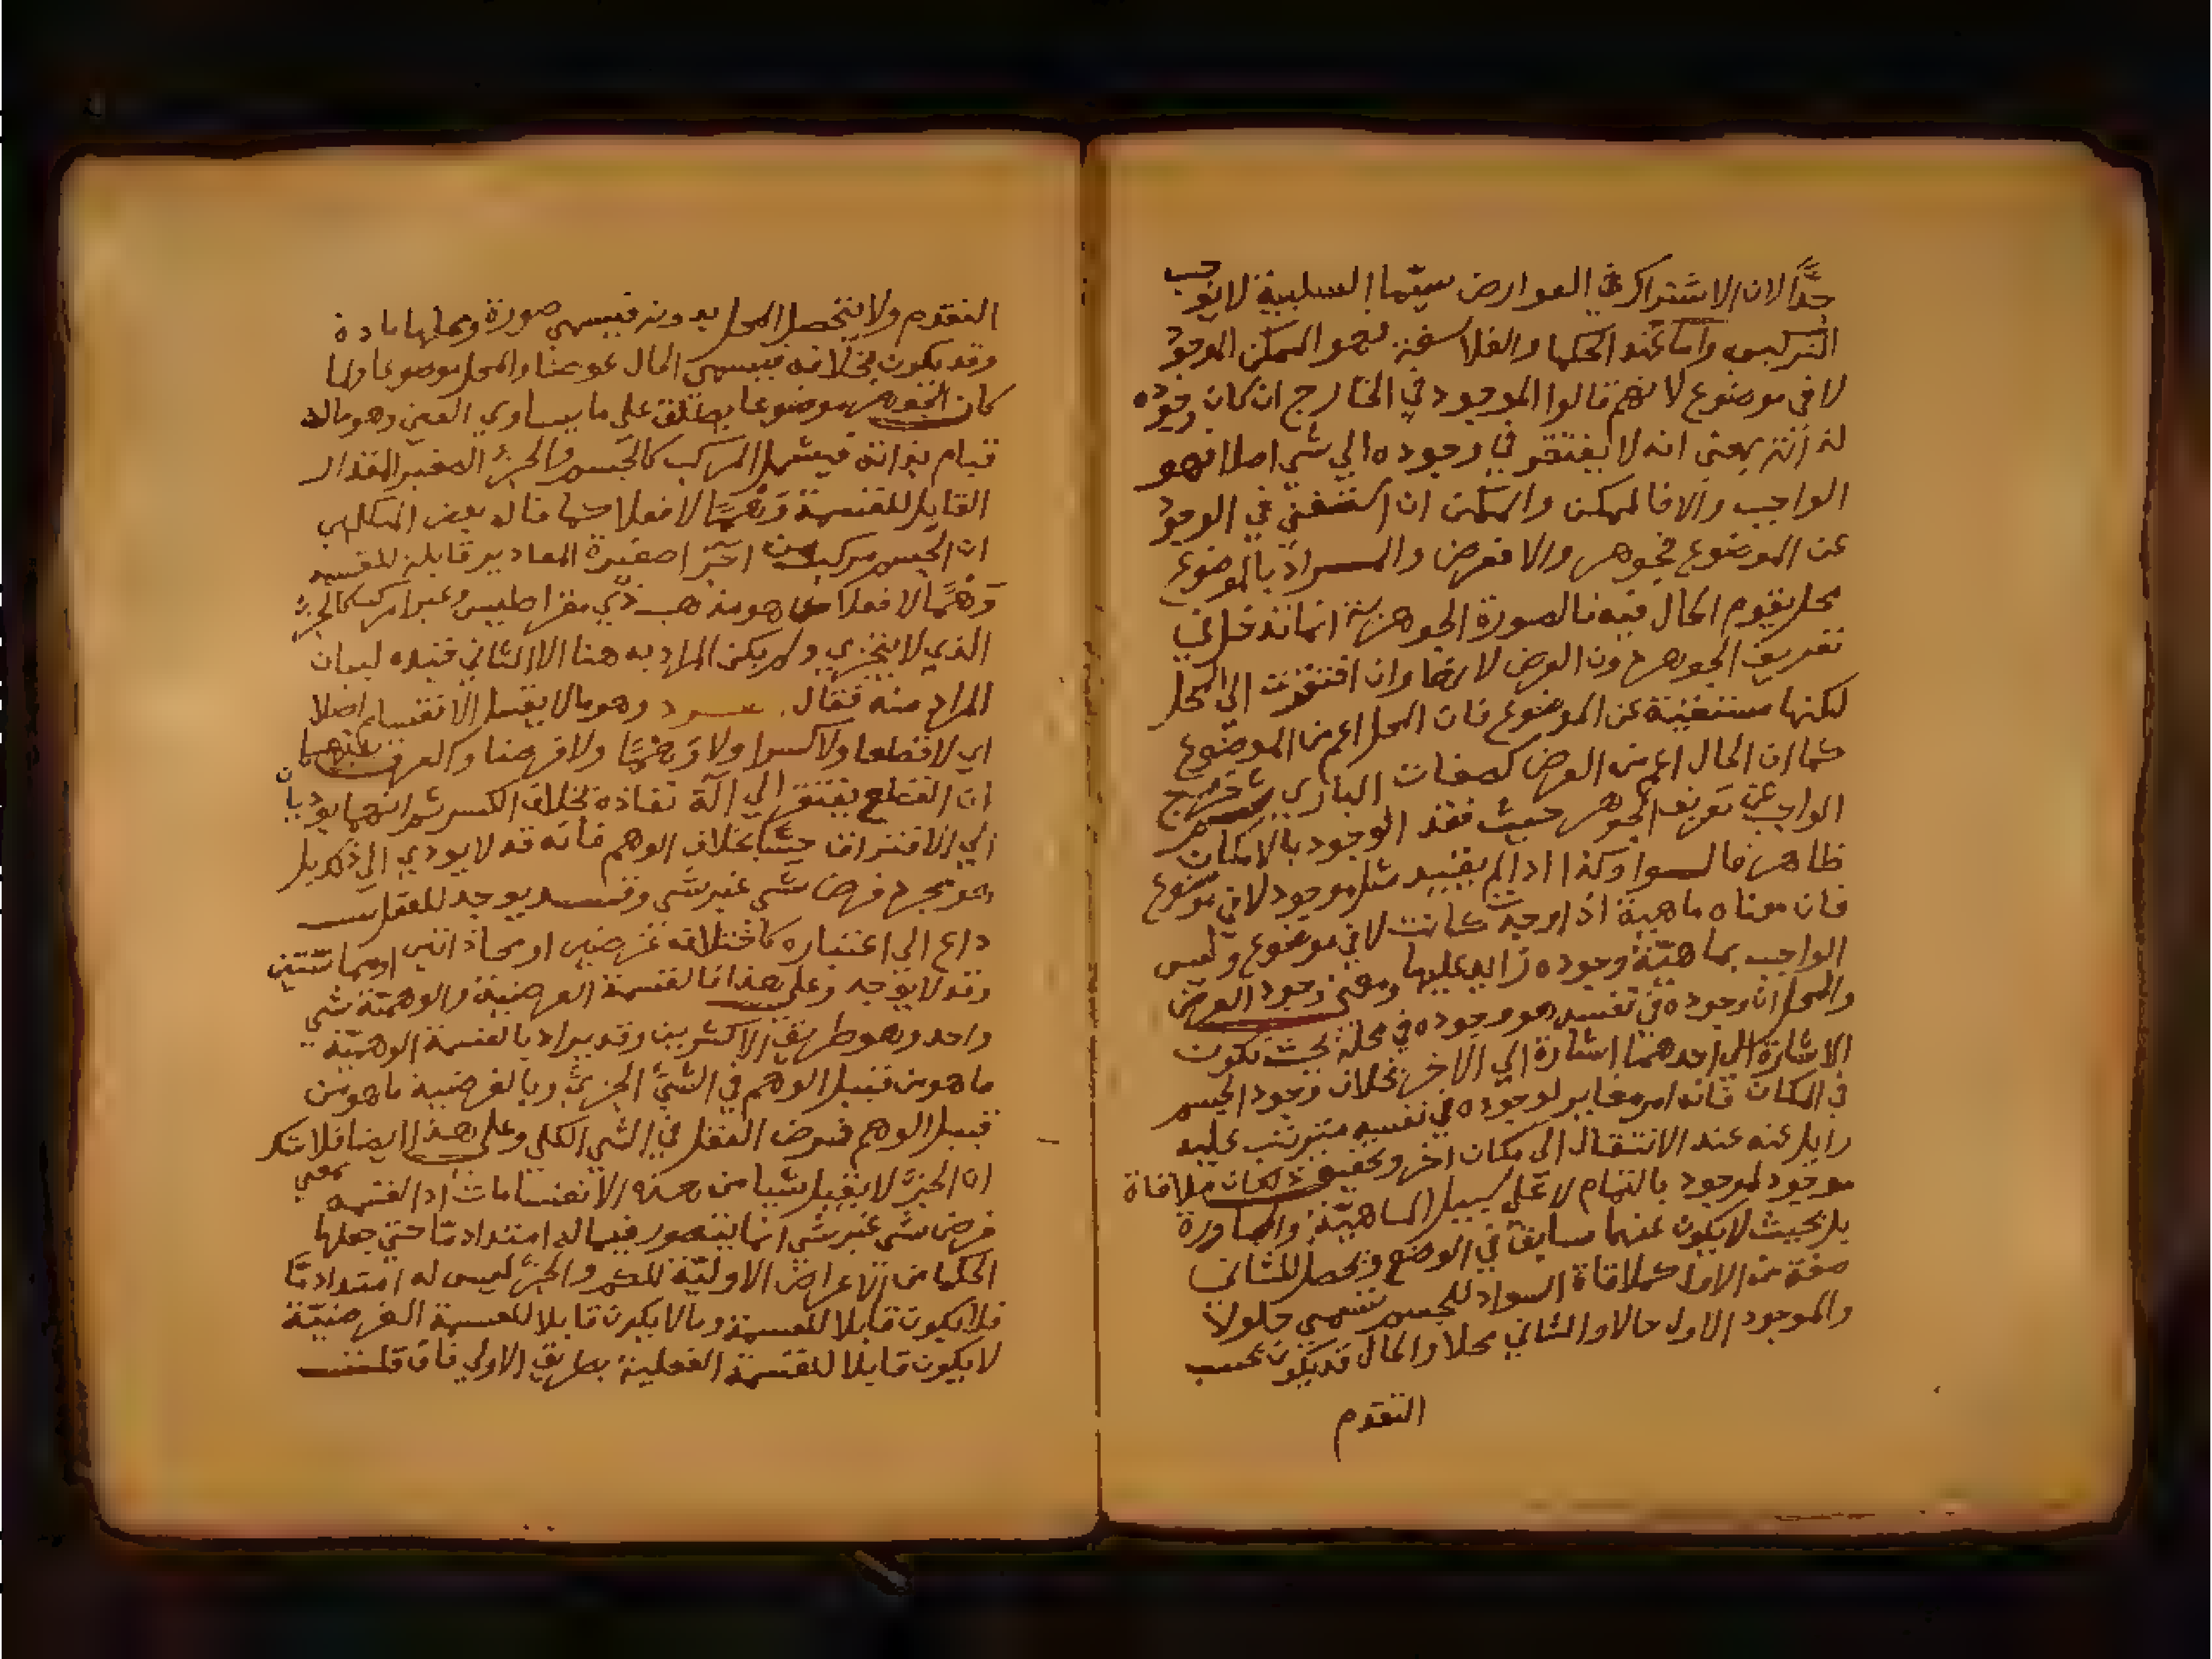 جدًّا لان الاشتراك في العوارض سيّما السلبية لا يوجب
التركيب واما عند الحكما والفلاسفة فهو الممكن الموجود
لا في موضوع لانهم قالوا الموجود في الخارج ان كان وجوده
لذاته بمعني انه لا يفتقر في وجوده الي شي اصلا فهو
الواجب والا فالممكن والممكن ان استغني في الوجود
عن الموضوع فجوهر والا فعرض والمراد بالموضوع
محل يقوم الحال فيه فالصورة الجوهرية انما تدخل في
تعريف الجوهر دون العرض لانها وان افتقرت الي المحل
لكنها مستغنية عن الموضوع فان المحل اعم من الموضوع
كما ان الحال اعم من العرض كصفات الباري ثم خروج
الواجب عن تعريف الجوهر حيث فقد الوجود بالامكان
ظاهر قالوا وكذا اذا لم يقيد مثل موجود لا في موضوع
فان معناه ماهية اذا وجدت كانت لا في موضوع وليس
الواجب بماهيّة وجوده زايد عليها ومعني وجود العرض
والمحل ان وجوده في نفسه هو وجوده في محله بحيث تكون
الاشارة الي احدهما اشارة الي الاخر بخلاف وجود الجسم
في المكان فانه امر مغاير لوجوده في نفسه مترتب عليه
زايل عنه عند الانتقال الي مكان اخر وتحقيق ذلك ان ملاقاة
موجود لموجود بالتمام لا علي سبيل المماسّة والمجاورة
بل بحيث لا يكون بينهما تباين في الوضع ويحصل للثاني
صفة من الاول كملاقاة السواد للجسم تسمي حلولا
والموجود الاول حالا والثاني محلا والحال قد يكون بحيث
التقدم
التقدم ولا يتحصل المحل بدونه فيسمي صورة ومحلها مادة
وقد يكون بخلافه فيسمي الحال عرضا والمحل موضوعا ولما
كان الجوهر موضوعا يطلق علي ما يساوي العين وهو ماله
قيام بذاته فيشمل المركب كالجسم والجزء الصغير المقدار
القابل للقسمة وَهْمًا لا فعلا كما قاله بعض المتكلمين
ان الجسم مركب من اجزا صغيرة المقادير قابلة للقسمة
وَهْمًا لا فعلا كما هو مذهب ذي مقراطيس وغير المركب كالجزء
الذي لا يتجزي ولم يكن المراد به هنا الا الثاني قيده لبيان
المراد منه فقال وهو ما لا يقبل الانقسام اصلا
اي لا قطعا ولا كسرا ولا وَهْمًا ولا فرضا والفرق بينهما
ان القطع يفتقر الي آلة نفاذة بخلاف الكسر ثم انهما يوديان
الي الافتراق حِسًّا بخلاف الوهم فانه قد لا يودي الي ذلك بل
هو مجرد فرض شي غير شي وقد يوجد للعقل
داع الي اعتباره كاختلاف عرضين او محاذاتين او مماسّتين
وقد لا يوجد وعلي هذا فالقسمة الفرضية والوهميّة شي
واحد وهو طريق الاكثرين وقد يراد بالقسمة الوهميّة
ما هو من قبيل الوهم في الشي الجزئي وبالفرضية ما هو من
قبيل الوهم فرض العقل في الشي الكلي وعلي هذا ايضا فلا شك
ان الجزء لا يقبل شيا من هذه الانقسامات اذ القسمة بمعني
فرض شي غير شي انما يتصور فيما له امتداد مّا حتي جعلها
الحكما من الاعراض الاوليّة للكم والجزء ليس له امتداد مّا
فلا يكون قابلا للقسمة وما لا يكون قابلا للقسمة الفرضيّة
لا يكون قابلا للقسمة الفعلية بطريق الاولي فان قلت